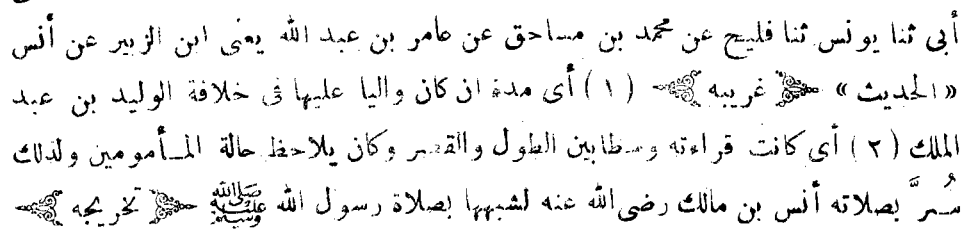 أبى ثنا يونس ثنا فليح عن محمد بن مساحق عن عامر بن عبد الله يعنى ابن الزبير عن أنس
« الحديث » ﴿ غريبه ﴾ ( ١ ) أى مدة ان كان واليا عليها فى خلافة الوليد بن عبد
الملك ( ٢ ) أى كانت قراءته وسطا بين الطول والقصر وكان يلاحظ حالة المـأمومين ولذلك
سُرَّ بصلاته أنس بن مالك رضى الله عنه لشبهها بصلاة رسول الله ﷺ ﴿ تخريجه ﴾